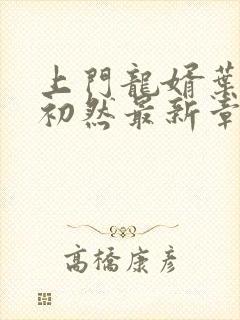 上門龍婿葉
初然最新章
高橋康彦